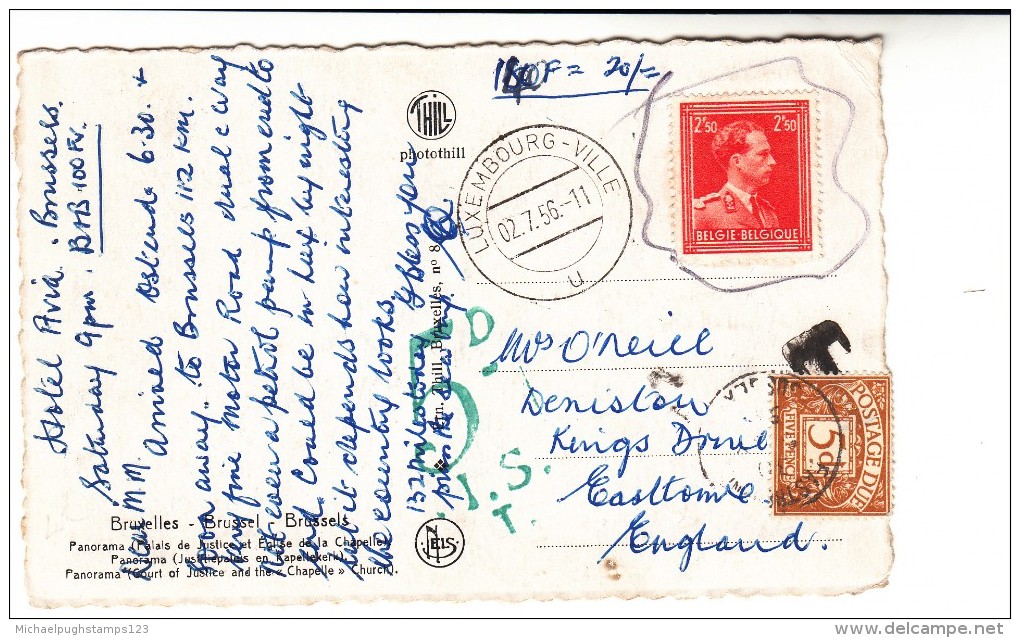 Hotel Avia. Brussels.
Saturday 9pm. B&B 100 Fr.
Dear M.M. Arrived Ostende 6.30. &
soon away.. to Brussels 112 km.
Very fine Motor Road dual c'way
Not even a petrol pump from end to
end. Could be in Lux by night
but it depends how interesting
the country looks.
132 miles today. G. Bless you
140F = 20/=
THILL
photothill
Ern. Thill, Bruxelles, n° 8
LUXEMBOURG-VILLE
02.7.56.-11
U
2F50 2F50
BELGIE-BELGIQUE
5D
I.S.
T.
Mrs O'Neill
Deniston
Kings Drive
Eastbourne
England.
POSTAGE DUE
5d
FIVE PENCE
NELS
Bruxelles - Brussel - Brussels
Panorama (Palais de Justice et Eglise de la Chapelle).
Panorama (Justitiepaleis en Kapellekerk).
Panorama (Court of Justice and the « Chapelle » Church).
Michaelpughstamps123
delcampe.net